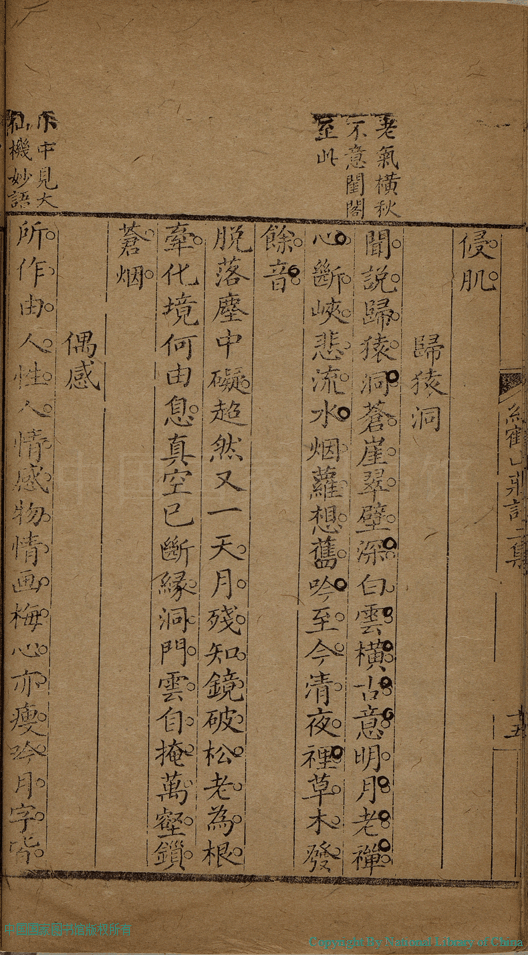 老氣橫秋
不意閨閣
至此
侵肌
歸猿洞
聞說歸猿洞蒼崖翠壁深白雲橫古意明月老禪
心斷峽悲流水烟蘿想舊吟至今清夜裡草木發
餘音
脫落塵中礙超然又一天月殘知鏡破松老為根
牽化境何由息真空已斷緣洞門雲自掩萬壑鎖
蒼烟
偶感
中見大
仙機妙語
所作由人性人情感物情画梅心亦瘦吟月字皆
十五
中国国家图书馆版权所有
Copyright by National Library of China